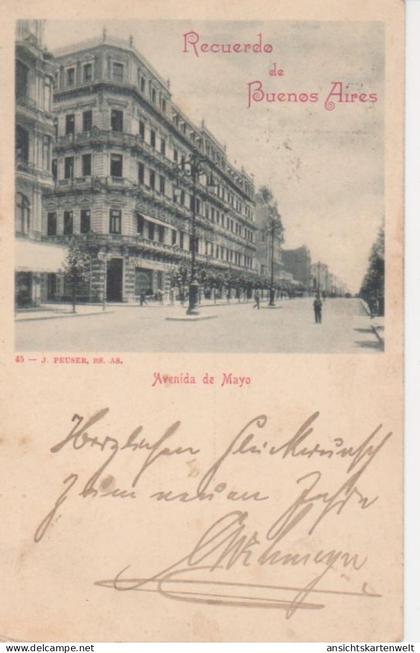 Recuerdo
de
Buenos Aires
45 — J. PEUSER, BS. AS.
Avenida de Mayo
Herzlichen Glückwunsch
zum neuen Jahre
www.delcampe.net
ansichtskartenwelt